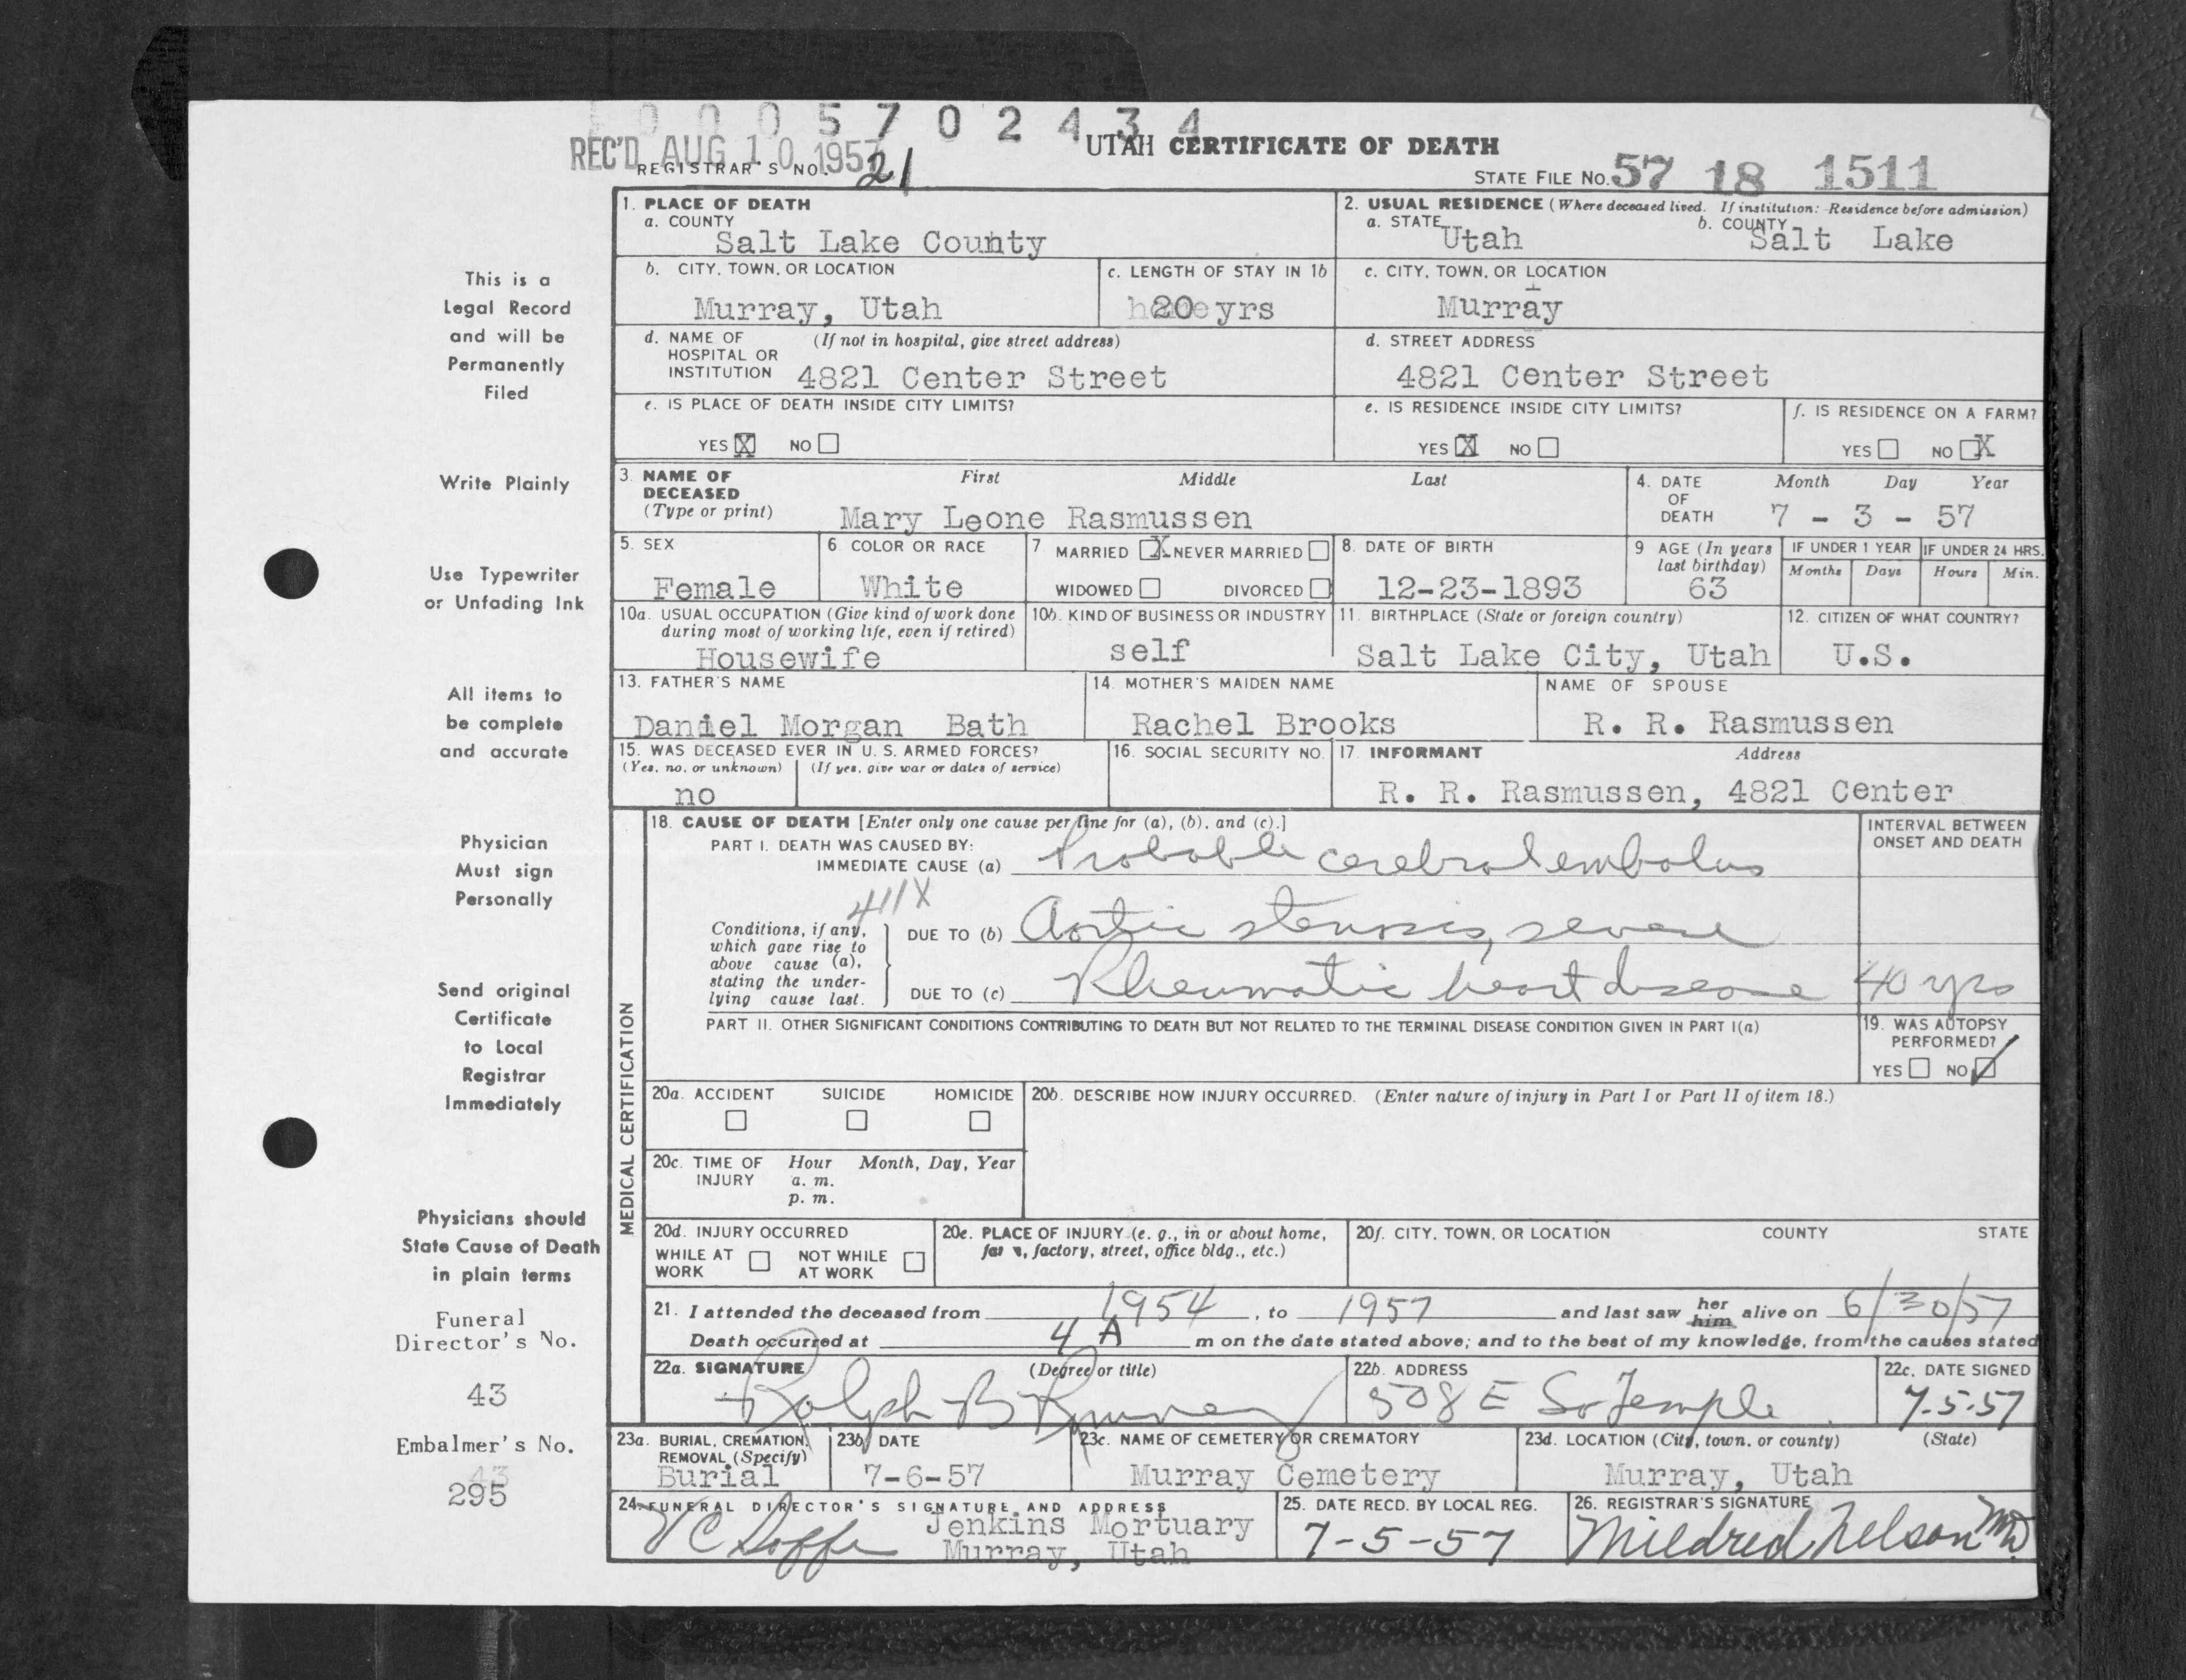 1 0 0 0 5 7 0 2 4 3 4
REC'D AUG 10 1957
UTAH CERTIFICATE OF DEATH
REGISTRAR'S NO. 21
STATE FILE No. 57 18 1511
1. PLACE OF DEATH
a. COUNTY
Salt Lake County
2. USUAL RESIDENCE (Where deceased lived. If institution: Residence before admission)
a. STATE Utah b. COUNTY Salt Lake
b. CITY, TOWN, OR LOCATION
Murray, Utah
c. LENGTH OF STAY IN 1b
20 yrs
c. CITY, TOWN, OR LOCATION
Murray
d. NAME OF HOSPITAL OR INSTITUTION (If not in hospital, give street address)
4821 Center Street
d. STREET ADDRESS
4821 Center Street
e. IS PLACE OF DEATH INSIDE CITY LIMITS?
YES X NO
e. IS RESIDENCE INSIDE CITY LIMITS?
YES X NO
f. IS RESIDENCE ON A FARM?
YES NO X
3. NAME OF DECEASED (Type or print)
First Middle Last
Mary Leone Rasmussen
4. DATE OF DEATH
Month Day Year
7 - 3 - 57
5. SEX
Female
6. COLOR OR RACE
White
7 MARRIED X NEVER MARRIED
WIDOWED DIVORCED
8. DATE OF BIRTH
12-23-1893
9 AGE (In years last birthday)
63
IF UNDER 1 YEAR
Months Days
IF UNDER 24 HRS.
Hours Min.
10a. USUAL OCCUPATION (Give kind of work done during most of working life, even if retired)
Housewife
10b. KIND OF BUSINESS OR INDUSTRY
self
11. BIRTHPLACE (State or foreign country)
Salt Lake City, Utah
12. CITIZEN OF WHAT COUNTRY?
U.S.
13. FATHER'S NAME
Daniel Morgan Bath
14. MOTHER'S MAIDEN NAME
Rachel Brooks
NAME OF SPOUSE
R. R. Rasmussen
15. WAS DECEASED EVER IN U. S. ARMED FORCES?
(Yes, no, or unknown) (If yes, give war or dates of service)
no
16. SOCIAL SECURITY NO.
17. INFORMANT Address
R. R. Rasmussen, 4821 Center
MEDICAL CERTIFICATION
18. CAUSE OF DEATH [Enter only one cause per line for (a), (b), and (c).]
INTERVAL BETWEEN ONSET AND DEATH
PART I. DEATH WAS CAUSED BY:
IMMEDIATE CAUSE (a) Probable cerebral embolus
411X
Conditions, if any, which gave rise to above cause (a), stating the underlying cause last.
DUE TO (b) Aortic stenosis, severe
DUE TO (c) Rheumatic heart disease 40 yrs
PART II. OTHER SIGNIFICANT CONDITIONS CONTRIBUTING TO DEATH BUT NOT RELATED TO THE TERMINAL DISEASE CONDITION GIVEN IN PART I(a)
19. WAS AUTOPSY PERFORMED?
YES NO ✓
20a. ACCIDENT SUICIDE HOMICIDE
20b. DESCRIBE HOW INJURY OCCURRED. (Enter nature of injury in Part I or Part II of item 18.)
20c. TIME OF INJURY Hour Month, Day, Year
a. m.
p. m.
20d. INJURY OCCURRED
WHILE AT WORK NOT WHILE AT WORK
20e. PLACE OF INJURY (e. g., in or about home, farm, factory, street, office bldg., etc.)
20f. CITY, TOWN, OR LOCATION COUNTY STATE
21. I attended the deceased from 1954, to 1957 and last saw her him alive on 6/30/57
Death occurred at 4 A m on the date stated above; and to the best of my knowledge, from the causes stated
22a. SIGNATURE (Degree or title)
Ralph B
22b. ADDRESS
508 E So Temple
22c. DATE SIGNED
7-5-57
23a. BURIAL, CREMATION, REMOVAL (Specify)
Burial
23b. DATE
7-6-57
23c. NAME OF CEMETERY OR CREMATORY
Murray Cemetery
23d. LOCATION (City, town, or county) (State)
Murray, Utah
24. FUNERAL DIRECTOR'S SIGNATURE AND ADDRESS
Jenkins Mortuary
Murray, Utah
25. DATE RECD. BY LOCAL REG.
7-5-57
26. REGISTRAR'S SIGNATURE
Mildred Nelson MD.
This is a
Legal Record
and will be
Permanently
Filed
Write Plainly
Use Typewriter
or Unfading Ink
All items to
be complete
and accurate
Physician
Must sign
Personally
Send original
Certificate
to Local
Registrar
Immediately
Physicians should
State Cause of Death
in plain terms
Funeral
Director's No.
43
Embalmer's No.
43
295